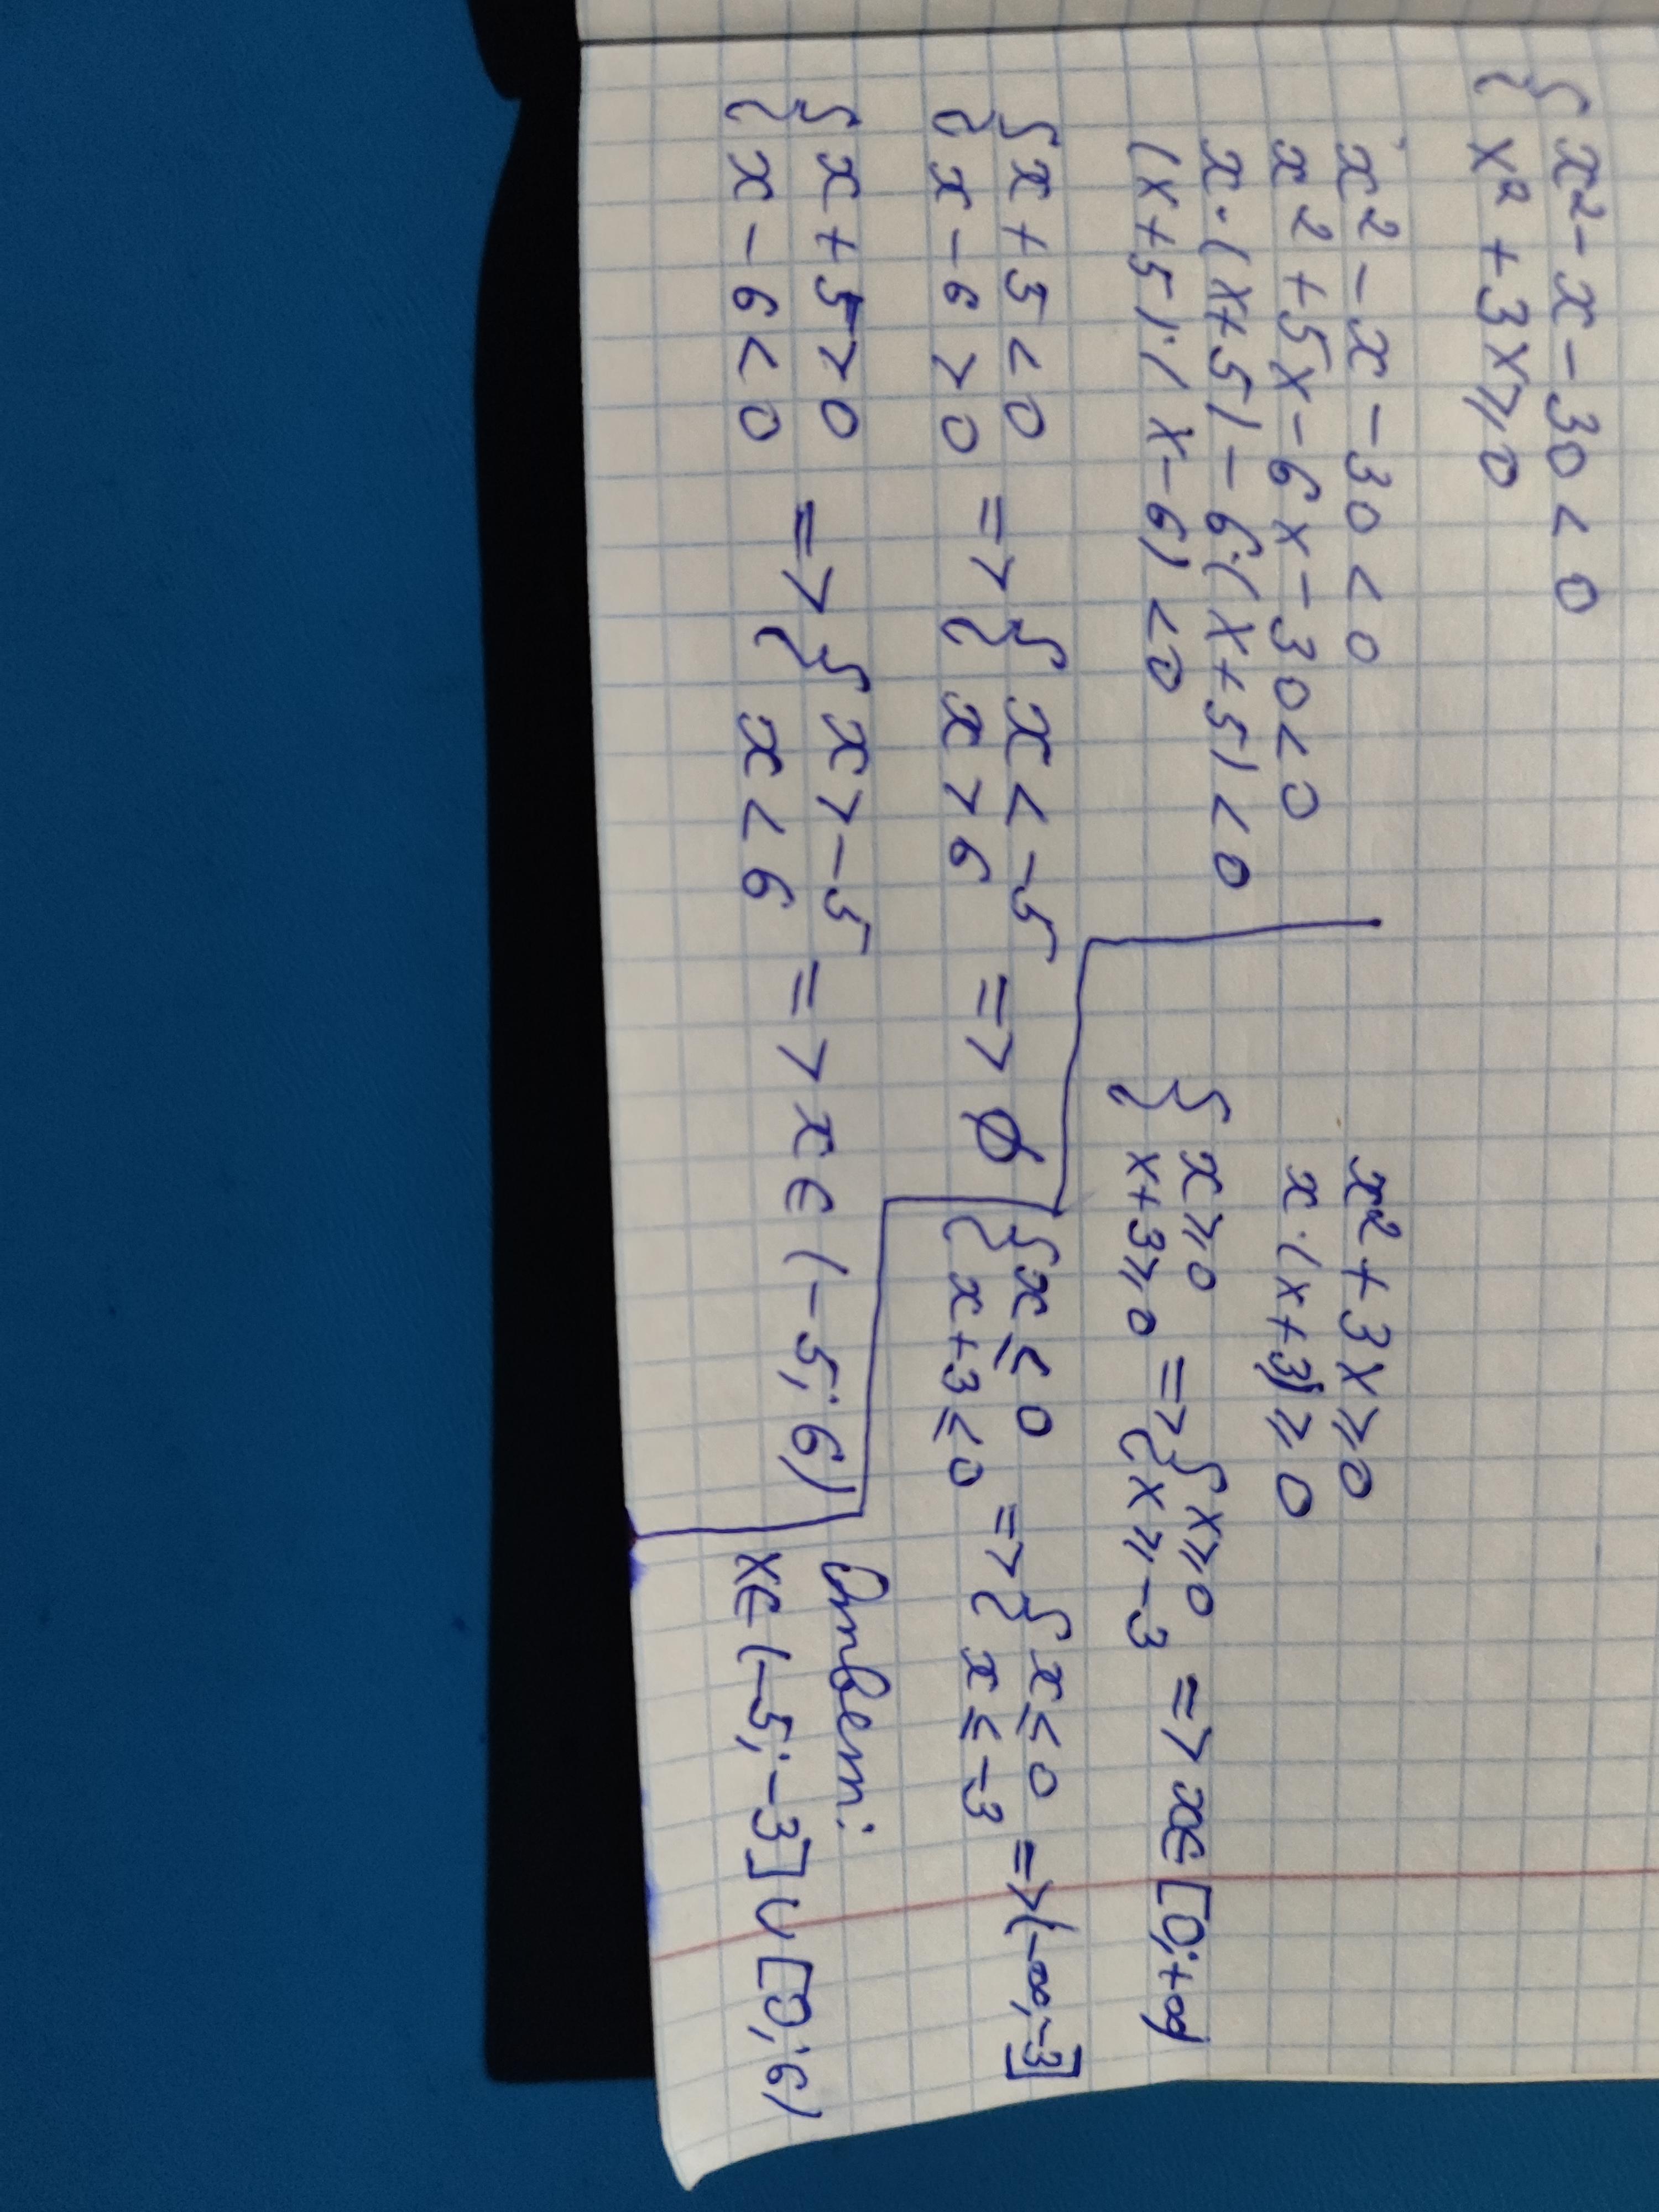 { x² - x - 30 < 0
{ x² + 3x ≥ 0
x² - x - 30 < 0
x² + 5x - 6x - 30 < 0
x · (x + 5) - 6 · (x + 5) < 0
(x + 5) · (x - 6) < 0
{ x + 5 < 0
{ x - 6 > 0 => { x < -5
{ x > 6 => Ø
{ x + 5 > 0
{ x - 6 < 0 => { x > -5
{ x < 6 => x ∈ (-5; 6)
x² + 3x ≥ 0
x · (x + 3) ≥ 0
{ x ≥ 0
{ x + 3 ≥ 0 => { x ≥ 0
{ x ≥ -3 => x ∈ [0; +∞)
{ x ≤ 0
{ x + 3 ≤ 0 => { x ≤ 0
{ x ≤ -3 => (-∞; -3]
Ответ:
x ∈ (-5; -3] ∪ [0; 6)